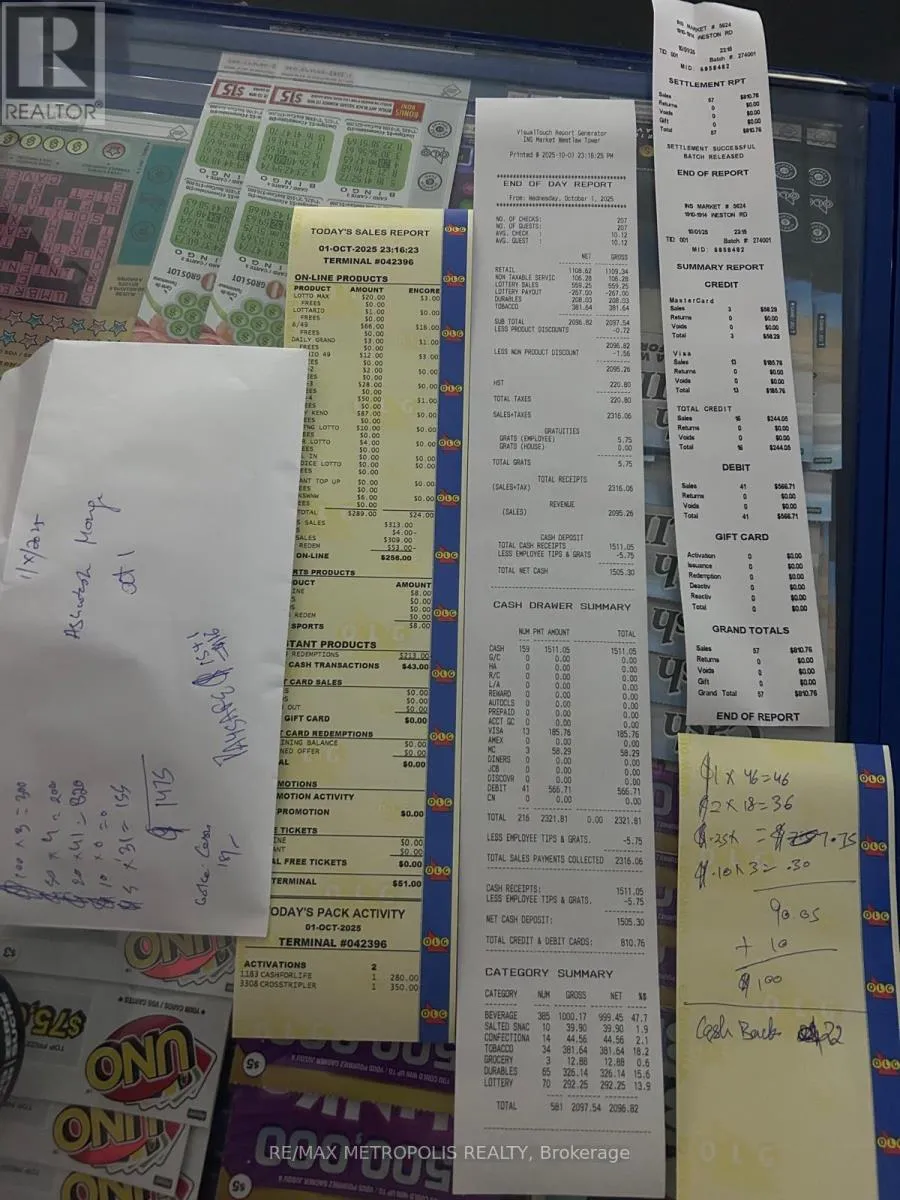 REALTOR®
TODAY'S SALES REPORT
01-OCT-2025 23:16:23
TERMINAL #042396
ON-LINE PRODUCTS
PRODUCT AMOUNT ENCORE
LOTTO MAX $20.00 $3.00
FREES $0.00
LOTTARIO $1.00 $0.00
FREES $0.00
6/49 $66.00 $18.00
FREES $0.00
DAILY GRAND $3.00 $1.00
FREES $0.00
IO 49 $12.00 $3.00
EES $0.00
-2 $2.00 $0.00
EES $0.00
-3 $28.00 $0.00
EES $0.00
-4 $50.00 $1.00
EES $0.00
Y KENO $87.00 $0.00
EES $0.00
NG LOTTO $10.00 $0.00
EES $0.00
R LOTTO $4.00 $0.00
EES $0.00
L IN $0.00 $0.00
DICE LOTTO $0.00 $0.00
EES $0.00
ANT TOP UP $0.00 $0.00
EES $0.00
KSNWN $6.00 $0.00
EES $0.00
TOTAL $289.00 $24.00
S SALES $313.00
$4.00-
SALES $309.00
REDEM $53.00-
ON-LINE $256.00
RTS PRODUCTS
DUCT AMOUNT
INE $8.00
S $0.00
S $0.00
REDEM $0.00
SPORTS $8.00
TANT PRODUCTS
REDEMPTIONS $213.00
CASH TRANSACTIONS $43.00
CARD SALES
S $0.00
S $0.00
OUT $0.00
GIFT CARD $0.00
CARD REDEMPTIONS
INING BALANCE $0.00
NED OFFER $0.00
AL $0.00
MOTIONS
MOTION ACTIVITY
PROMOTION $0.00
E TICKETS
INE $0.00
ANT $0.00
AL FREE TICKETS $0.00
TERMINAL $51.00
TODAY'S PACK ACTIVITY
01-OCT-2025
TERMINAL #042396
ACTIVATIONS 2
1183 CASHFORLIFE 1 280.00
3308 CROSSTRIPLER 1 350.00
VisualTouch Report Generator
INS Market Westlaw Tower
Printed @ 2025-10-01 23:16:25 PM
END OF DAY REPORT
From: Wednesday, October 1, 2025
NO. OF CHECKS: 207
NO. OF GUESTS: 207
AVG. CHECK : 10.12
AVG. GUEST : 10.12
NET GROSS
RETAIL 1108.62 1109.34
NON TAXABLE SERVIC 106.28 106.28
LOTTERY SALES 559.25 559.25
LOTTERY PAYOUT -267.00 -267.00
DURABLES 208.03 208.03
TOBACCO 381.64 381.64
SUB TOTAL 2096.82 2097.54
LESS PRODUCT DISCOUNTS -0.72
2096.82
LESS NON PRODUCT DISCOUNT -1.56
2095.26
HST 220.80
TOTAL TAXES 220.80
SALES+TAXES 2316.06
GRATUITIES
GRATS (EMPLOYEE) 5.75
GRATS (HOUSE): 0.00
TOTAL GRATS 5.75
TOTAL RECEIPTS
(SALES+TAX) 2316.06
REVENUE
(SALES) 2095.26
CASH DEPOSIT
TOTAL CASH RECEIPTS 1511.05
LESS EMPLOYEE TIPS & GRATS -5.75
TOTAL NET CASH 1505.30
CASH DRAWER SUMMARY
NUM PMT AMOUNT TOTAL
CASH 159 1511.05 1511.05
G/C 0 0.00 0.00
HA 0 0.00 0.00
R/C 0 0.00 0.00
L/A 0 0.00 0.00
REWARD 0 0.00 0.00
AUTOCLS 0 0.00 0.00
PREPAID 0 0.00 0.00
ACCT GC 0 0.00 0.00
VISA 13 185.76 185.76
AMEX 0 0.00 0.00
MC 3 58.29 58.29
DINERS 0 0.00 0.00
JCB 0 0.00 0.00
DISCOVR 0 0.00 0.00
DEBIT 41 566.71 566.71
CN 0 0.00 0.00
TOTAL 216 2321.81 0.00 2321.81
LESS EMPLOYEE TIPS & GRATS. -5.75
TOTAL SALES PAYMENTS COLLECTED 2316.06
CASH RECEIPTS: 1511.05
LESS EMPLOYEE TIPS & GRATS. -5.75
NET CASH DEPOSIT: 1505.30
TOTAL CREDIT & DEBIT CARDS: 810.76
CATEGORY SUMMARY
CATEGORY NUM GROSS NET %$
BEVERAGE 385 1000.17 999.45 47.7
SALTED SNAC 10 39.90 39.90 1.9
CONFECTIONA 14 44.56 44.56 2.1
TOBACCO 34 381.64 381.64 18.2
GROCERY 3 12.88 12.88 0.6
DURABLES 65 326.14 326.14 15.6
LOTTERY 70 292.25 292.25 13.9
TOTAL 581 2097.54 2096.82
INS MARKET # 5624
1910-1914 WESTON RD
10/01/25 23:18
TID 001 Batch # 274001
MID: 6858482
SETTLEMENT RPT
Sales 57 $810.76
Returns 0 $0.00
Voids 0 $0.00
Gift 0 $0.00
Total 57 $810.76
SETTLEMENT SUCCESSFUL
BATCH RELEASED
END OF REPORT
INS MARKET # 5624
1910-1914 WESTON RD
10/01/25 23:18
TID 001 Batch # 274001
MID: 6858482
SUMMARY REPORT
CREDIT
MasterCard
Sales 3 $58.29
Returns 0 $0.00
Voids 0 $0.00
Total 3 $58.29
Visa
Sales 13 $185.76
Returns 0 $0.00
Voids 0 $0.00
Total 13 $185.76
TOTAL CREDIT
Sales 16 $244.05
Returns 0 $0.00
Voids 0 $0.00
Total 16 $244.05
DEBIT
Sales 41 $566.71
Returns 0 $0.00
Voids 0 $0.00
Total 41 $566.71
GIFT CARD
Activation 0 $0.00
Issuance 0 $0.00
Redemption 0 $0.00
Deactiv 0 $0.00
Reactiv 0 $0.00
Total 0 $0.00
GRAND TOTALS
Sales 57 $810.76
Returns 0 $0.00
Voids 0 $0.00
Gift 0 $0.00
Grand Total 57 $810.76
END OF REPORT
$1 x 46 = 46
$2 x 18 = 36
$.25x = $7.75
$.10 x 3 = .30
90.05
+ 10
$100
Cash Back 22
oct 1
$100 x 3 = 300
$50 x 4 = 200
$20 x 41 = 820
$10 x 0 = 0
$5 x 31 = 155
$1475
OLG
BINGO
$15
BONUS
GROS LOT
UNO
$75,0
TOP PRIZE
$5
RE/MAX METROPOLIS REALTY, Brokerage